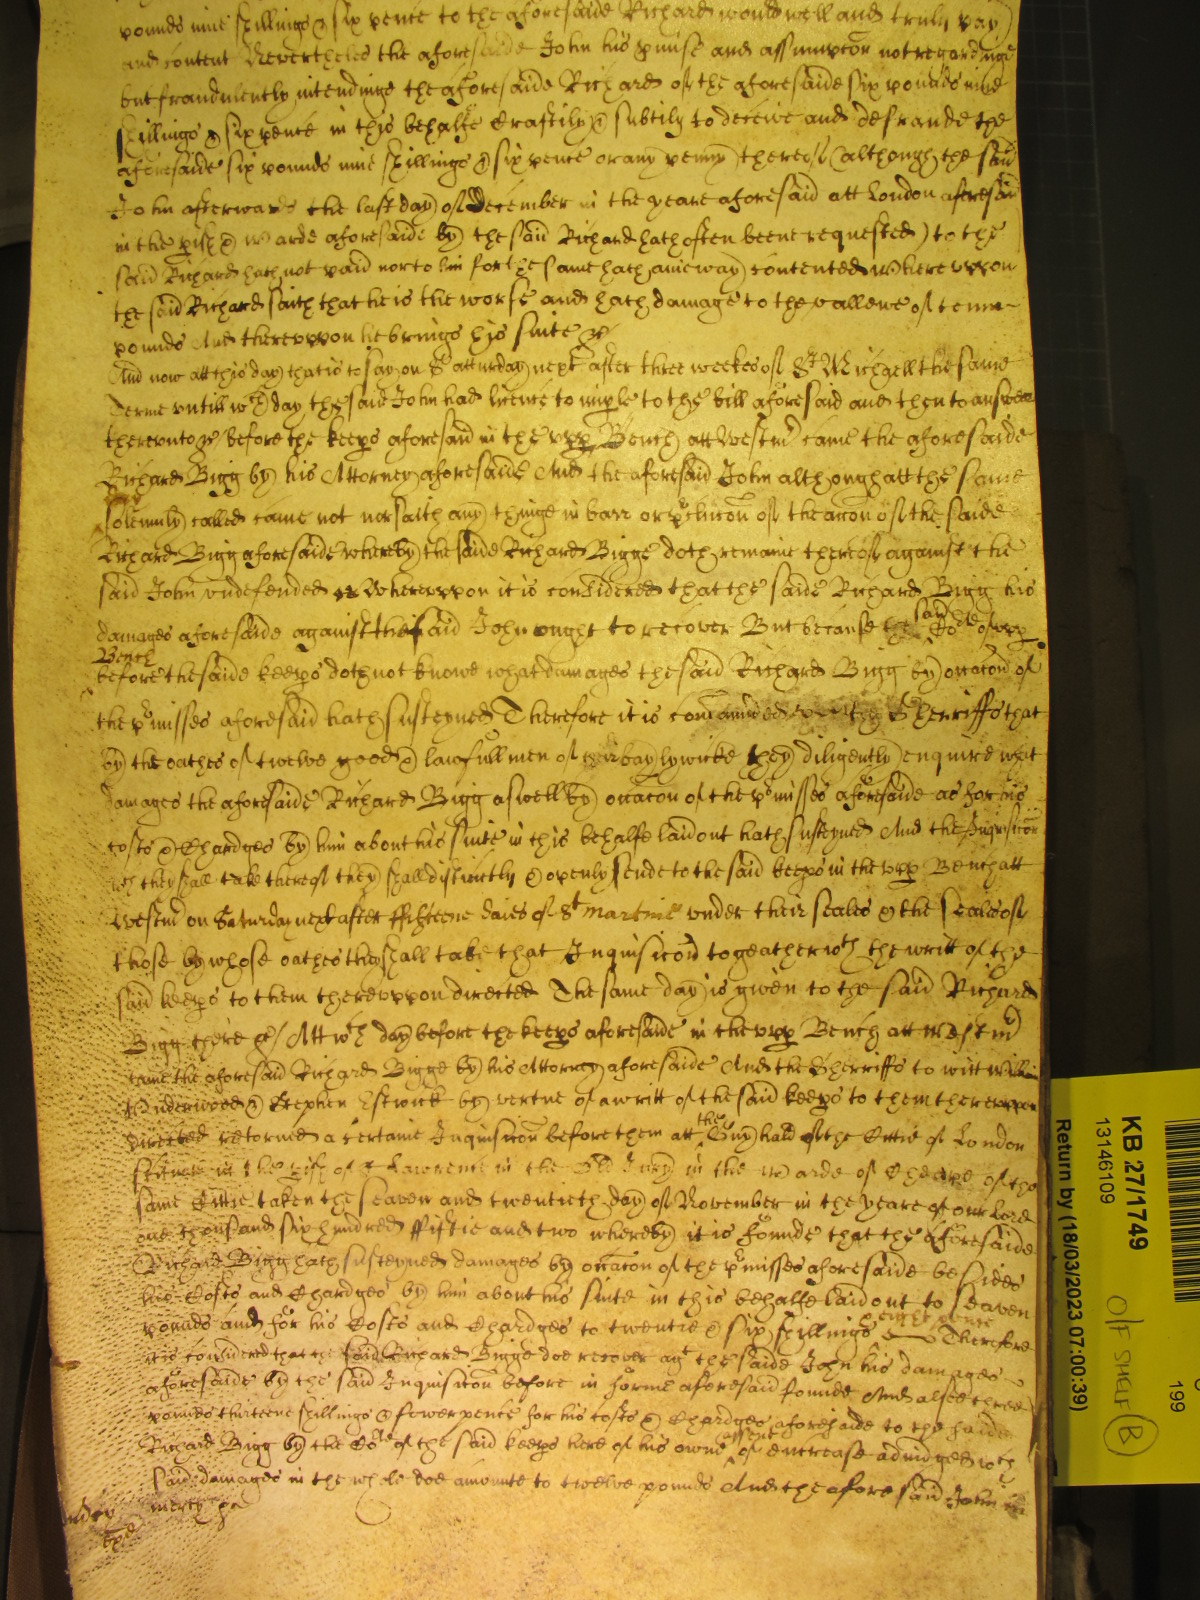 pounds nine shillings & six pence to the aforesaide Richard would well and truly pay
and content Nevertheles the aforesaide John his pmise and assumpcon not regardinge
but fraudulently intendinge the aforesaide Richard of the aforesaide six pounds nine
shillings & six pence in this behalfe Craftily & subtily to deceive and defraude the
aforesaide six pounds nine shillings & six pence or any penny thereof (although the said
John afterwards the last day of December in the yeare aforesaid att London aforesaid
in the pish & warde aforesaide by the said Richard hath often beene requested) to the
said Richard hath not paid nor to him for the same hath anie way contented Whereuppon
the said Richard saith that he is the worse and hath damage to the vallewe of tenne
pounds And thereuppon he brings his suite &c
And now att this day that is to say on Satturday next after three weekes of St Michaell the same
Terme untill wch day the said John had licence to imple to the bill aforesaid and then to answere
thereunto &c before the keeps aforesaid in the upp Bench att Westmr came the aforesaide
Richard Bigg by his Attorney aforesaide And the aforesaid John although att the same
day
solemnly called came not nor saith any thinge in barr or pclucon of the accon of the saide
Richard Bigg aforesaide whereby the saide Richard Bigge doth remaine thereof against the
said John undefended Whereuppon it is considered that the saide Richard Bigg his
damages aforesaide against the said John ought to recover But because the said Cort of upp
Bench
before the saide keeps doth not knowe what damages the said Richard Bigg by occacon of
the pmisses aforesaid hath susteyned Therefore it is comaunded Sherriffs that
by the oathes of twelve good & lawfull men of their baylywicke they diligently enquire what
damages the aforesaide Richard Bigg aswell by occacon of the pmisses aforesaide as for his
costs & Chardges by him about his suite in this behalfe laid out hath susteyned And the Inquisicon
wch they shall take thereof they shall distinctly & openly sende to the said keeps in the upp Bench att
Westmr on Saturday next after ffifteene daies of St Martine under their seales & the seales of
those by whose oathes they shall take that Inquisicon togeather wth the writt of the
said keeps to them thereuppon directed The same day is given to the said Richard
Bigg there &c/ Att wch day before the keeps aforesaide in the upp Bench att Westmr
came the aforesaid Richard Bigge by his Attorney aforesaide And the Sherriffs to witt William
Underwood & Stephen Estwick by vertue of a writt of the said keeps to them thereuppon
directed retorned a certaine Inquisicon before them att the Guyhald of the Cittie of London
scituate in the pish of St Lawrence in the Old Jury in the warde of Cheape of the
same Cittie taken the seaven and twentieth day of November in the yeare of our Lord
one thousand six hundred ffiftie and two whereby it is founde that the aforesaide
Richard Bigg hath susteyned damages by occacon of the pmisses aforesaide besides
his Costs and Chardges by him about his suite in this behalfe laid out to seaven
pounds and for his Costs and Chardges to twentie & six shillings eight pence Therefore
it is considered that the said Richard Bigge doe recover agt the saide John his damages
aforesaide by the said Inquisicon before in forme aforesaid founde And alsoe three
pounds thirteene shillings & fower pence for his costs & Chardges aforesaide to the saide
Richard Bigg by the Cort of the said keeps here of his owne assent of encrease adiudged wch
said damages in the whole doe amounte to twelve pounds And the aforesaid John in
mercy &c